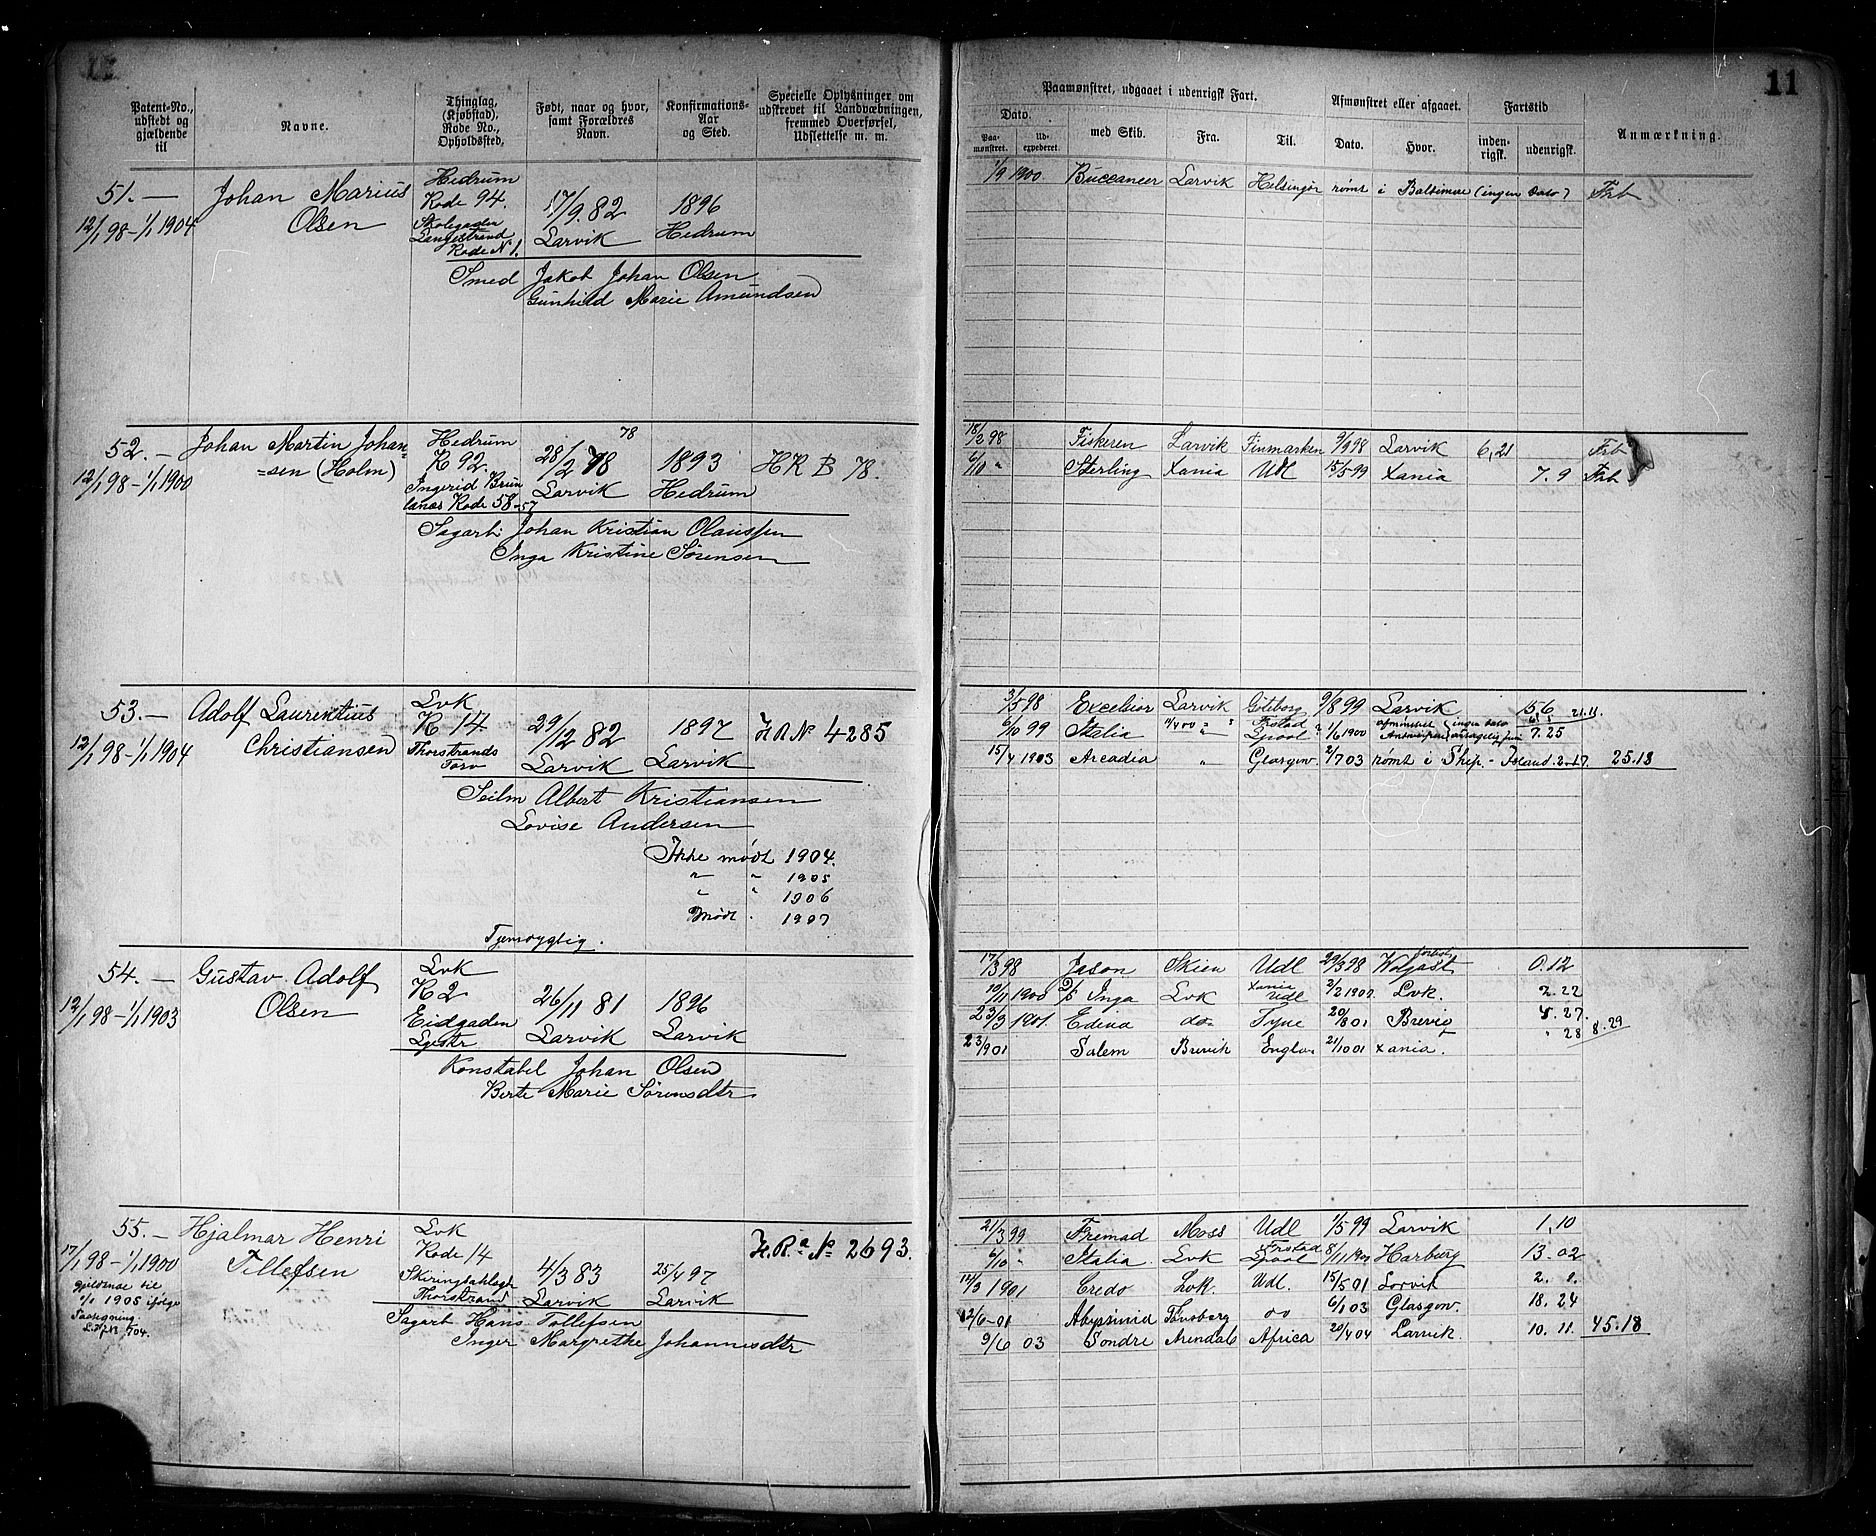 11
Patent-No., udstedt og gjældende til
Navne.
Thinglag, (Kjøbstad), Rode No., Opholdssted.
Født, naar og hvor, samt Forældres Navn.
Konfirmations-Aar og Sted.
Specielle Oplysninger om udskrevet til Landvæbningen, fremmed Overførsel, Udslettelse m. m.
Paamønstret, udgaaet i udenrigsk Fart.
Dato.
Paa-mønstret.
Ud-expederet.
med Skib.
Fra.
Til.
Afmønstret eller afgaaet.
Dato.
Hvor.
Fartstid
inden-rigsk.
udenrigsk.
Anmærkning.
51. — Johan Marius Olsen
12/1 98 – 1/1 1904
Hedrum
Rode 94.
Skolegaden
Langestrand
Rode N 1.
17/9. 82
Larvik
1896
Hedrum
Smed Jakob Johan Olsen
Gunhild Marie Amundsen
1/9 1900 Buccaneer Larvik Helsingør rømt i Baltimore (ingen dato) Frb
52. — Johan Martin Johan=
=sen (Holm)
12/1 98 – 1/1 1900
Hedrum
R 92.
Ingerid Brun
lanæs Rode 58-57
78
28/2 78
Larvik
1893
Hedrum
HR B 78.
Sagarb. Johan Kristian Olaussen
Inga Kristine Sørensen
18/2 98 Fiskeren Larvik Finmarken 9/9 98 Larvik 6,21 Frb
6/10 " Sterling Xania Udl 15/5 99 Xania 7.9 Frb
53. — Adolf Laurentius
Christiansen
12/1 98 – 1/1 1904
Lvk
R 14.
Thorstrands
Torv
29/12 82
Larvik
1897
Larvik
H R № 4285
Seilm Albert Kristiansen
Lovise Andersen
Ikke mødt 1904.
" " 1905
" " 1906
Mødt. 1907
Tjenstdygtig.
3/5 98 Excelsior Larvik Göteborg 9/8 99 Larvik 21.11.
6/10 99 Italia " Frstad Lpool 1/6 1900 ingen dato 7.25
15/4 1903 Arcadia " Glasgow. 2/7 03 rømt i Ship-Island. 2.17. 25.18
54. — Gustav Adolf
Olsen
12/1 98 – 1/1 1903
Lvk
R 2
Eidgaden
Lgstr
26/11 81
Larvik
1896
Larvik
Konstabel Johan Olsen
Berte Marie Sørensdtr
17/3 98 Jason Skien Udl 29/3 98 Wolgast 0.12
10/11 1900 D/S Inga Lvk Xania Udl 2/2 1901. Lvk. 2.22
23/3 1901. Edina do Tyne 20/8 01 Brevig 4.27.
23/9 01 Salem Brevik Englan 21/10 01 Xania. " 28 8.29
55. — Hjalmar Henri
Tollefsen
17/1 98 – 1/1 1900
gjeldende til
1/1 1905 ifølge
Paategning
Lvk
Rode 14
Skiringsaklagt
Thorstrand
4/3 83
Larvik
25/4 97
Larvik
H.R.a № 2693.
Sagarb Hans Tollefsen
Inger Margrethe Johannesdtr
21/3 99 Fremad Moss Udl 1/5 99 Larvik 1.10
6/10 " Italia Lvk Frstad Lpool 8/11 1900 Harburg 13.02
12/3 1901 Credo Lvk. Udl. 15/5 01 Larvik 2. 1.
12/6-01 Abyssinia Tønsberg do 6/1 03 Glasgow. 18.24
9/6 03 Søndre Arendals Africa 20/4 04 Larvik. 10.11. 45.18